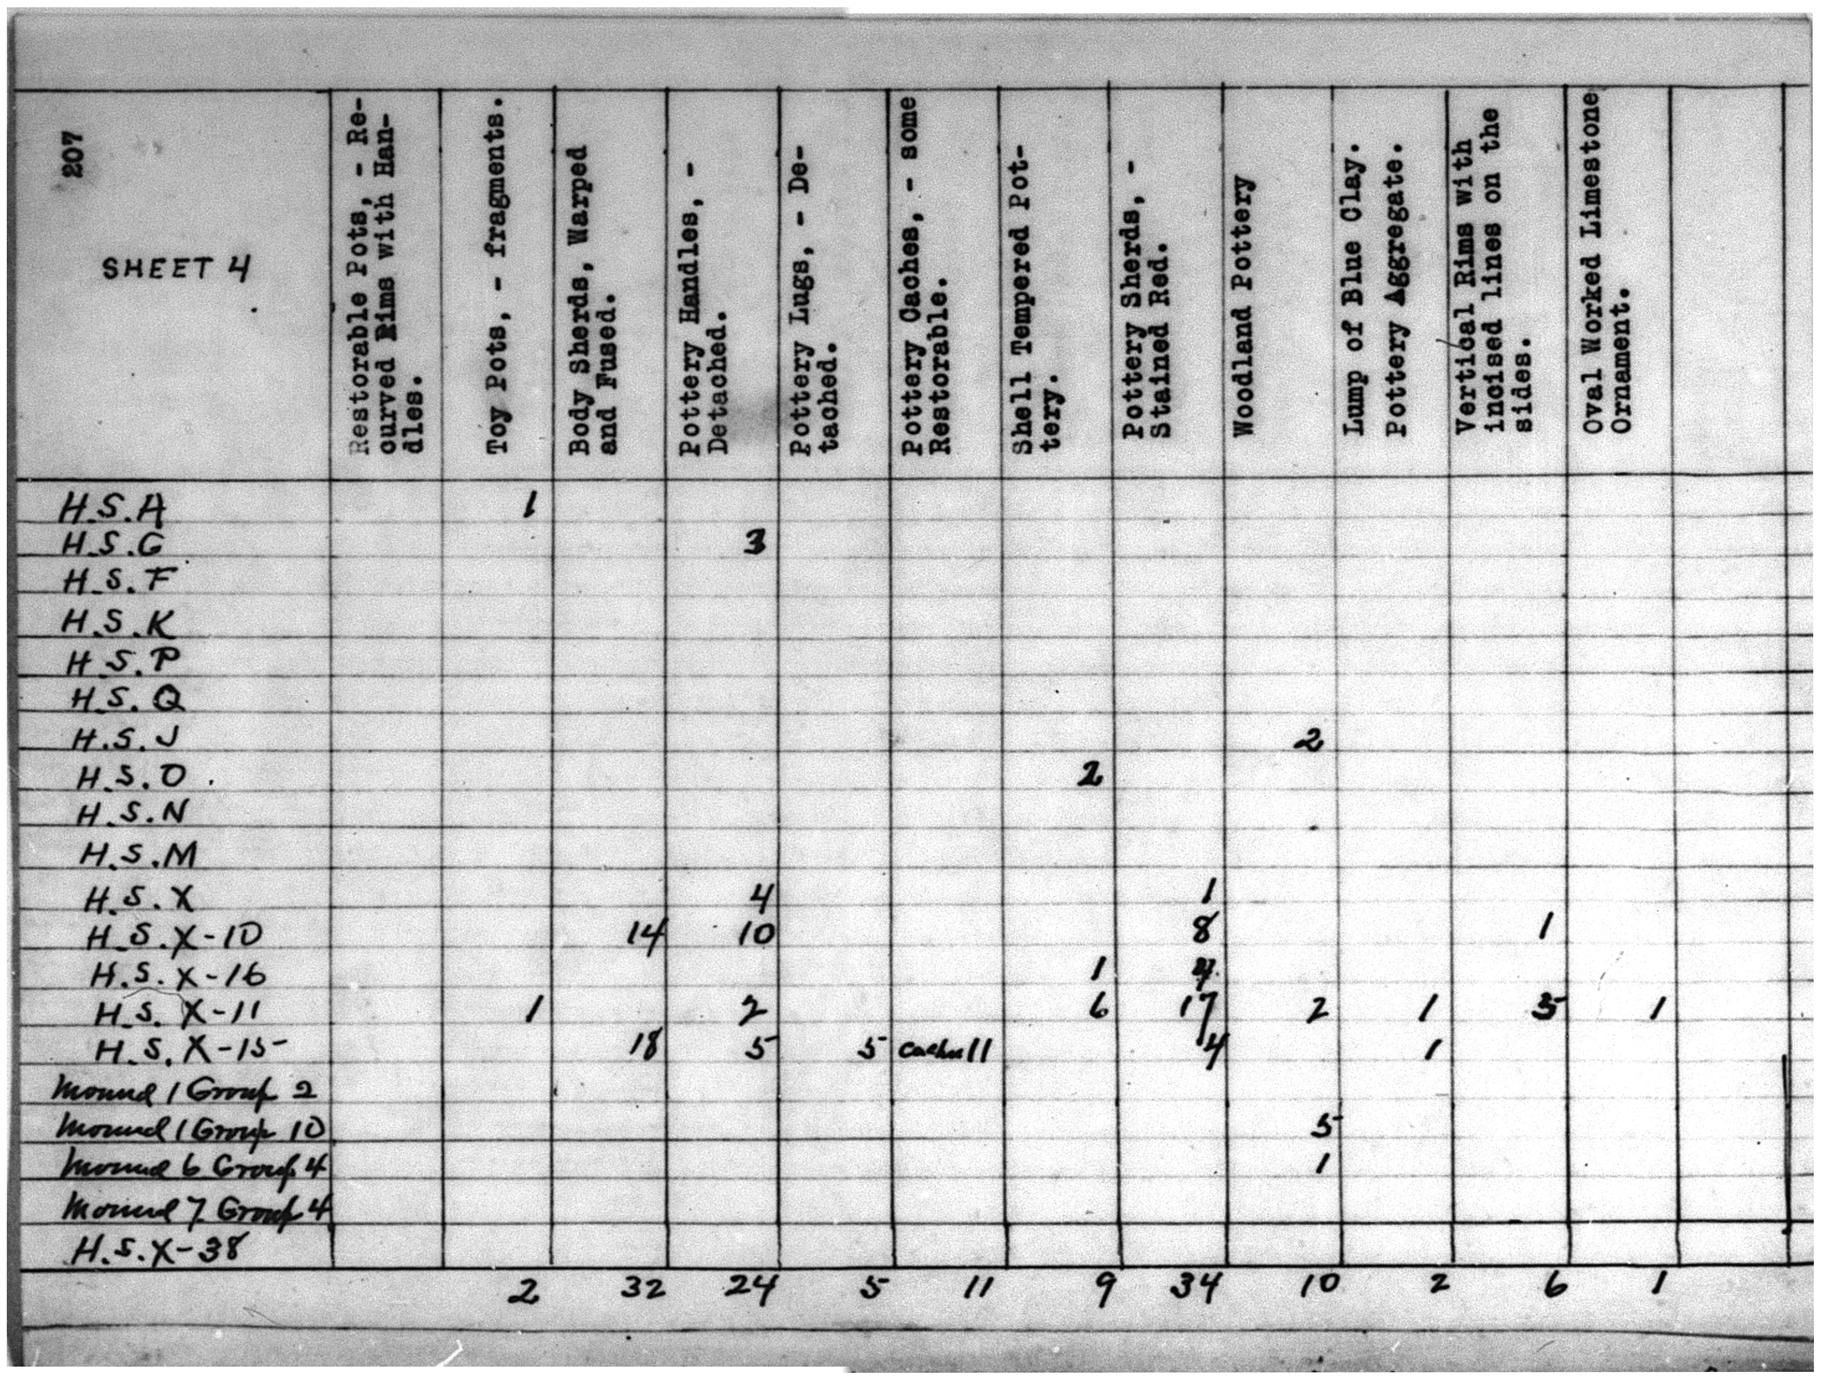 207
SHEET 4
Restorable Pots, - Re-
curved Rims with Han-
dles.
Toy Pots, - fragments.
Body Sherds, Warped
and Fused.
Pottery Handles, -
Detached.
Pottery Lugs, - De-
tached.
Pottery Caches, - some
Restorable.
Shell Tempered Pot-
tery.
Pottery Sherds, -
Stained Red.
Woodland Pottery
Lump of Blue Clay.
Pottery Aggregate.
Vertical Rims with
incised lines on the
sides.
Oval Worked Limestone
Ornament.
H.S.A 1
H.S.G 3
H.S.F
H.S.K
H.S.P
H.S.Q
H.S.J 2
H.S.O 2
H.S.N
H.S.M
H.S.X 4 1
H.S.X-10 14 10 8 1
H.S.X-16 1
H.S.X-11 1 2 6 17 2 1 5 1
H.S.X-15 18 5 5 11 4 1
Mound 1 Group 2
Mound 1 Group 10 5
Mound 6 Group 4 1
Mound 7 Group 4
H.S.X-38
2 32 24 5 11 9 34 10 2 6 1